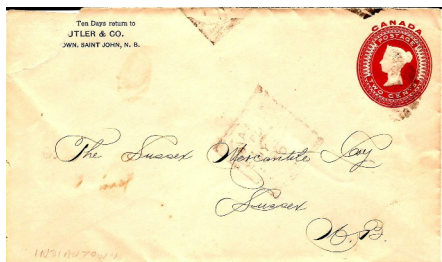 Ten Days return to
UTLER & CO.
OWN, SAINT JOHN, N. B.
CANADA
POSTAGE
TWO CENTS
The Sussex Mercantile Coy
Sussex
N.B.
INDIANTOWN